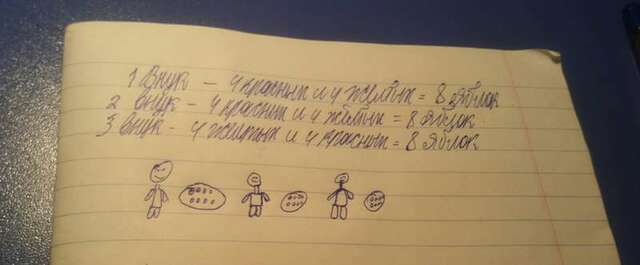 1 Внук – 4 красных и 4 жёлтых = 8 яблок
2 внук – 4 красных и 4 жёлтых = 8 яблок
3 внук – 4 жёлтых и 4 красных = 8 яблок